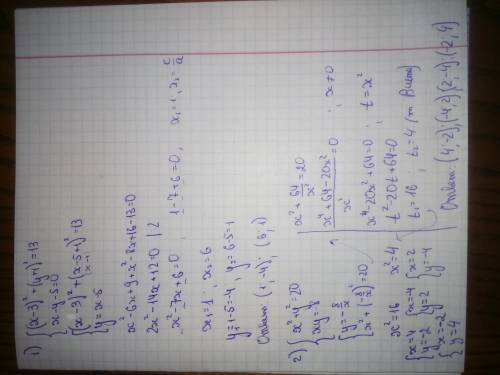 1) { (x-3)²+(y+1)²=13
x-y-5=0
{ (x-3)²+(x-5+1)²=13
y=x-5
x²-6x+9+x²-8x+16-13=0
2x²-14x+12=0 | 2
x²-7x+6=0, 1-7+6=0, x₁=1, x₂=c/a
x₁=1, x₂=6
y₁=1-5=-4 y₂=6-5=1
Ответ: (1,-4); (6,1)
2) { x²+y²=20
xy=-8
{ y=-8/x
x²+(-8/x)²=20
x²+64/x²=20
x⁴+64-20x²/x=0 ; x≠0
x⁴-20x²+64=0 ; t=x²
t²-20t+64=0
t₁=16 ; t₂=4 (т. Виета)
x²=16 x²=4
{ x=4 y=-2 { x=-4 y=2 { x=2 y=-4
{ x=-2 y=4
Ответ: (4,-2);(-4,2);(2,-4);(-2,4)